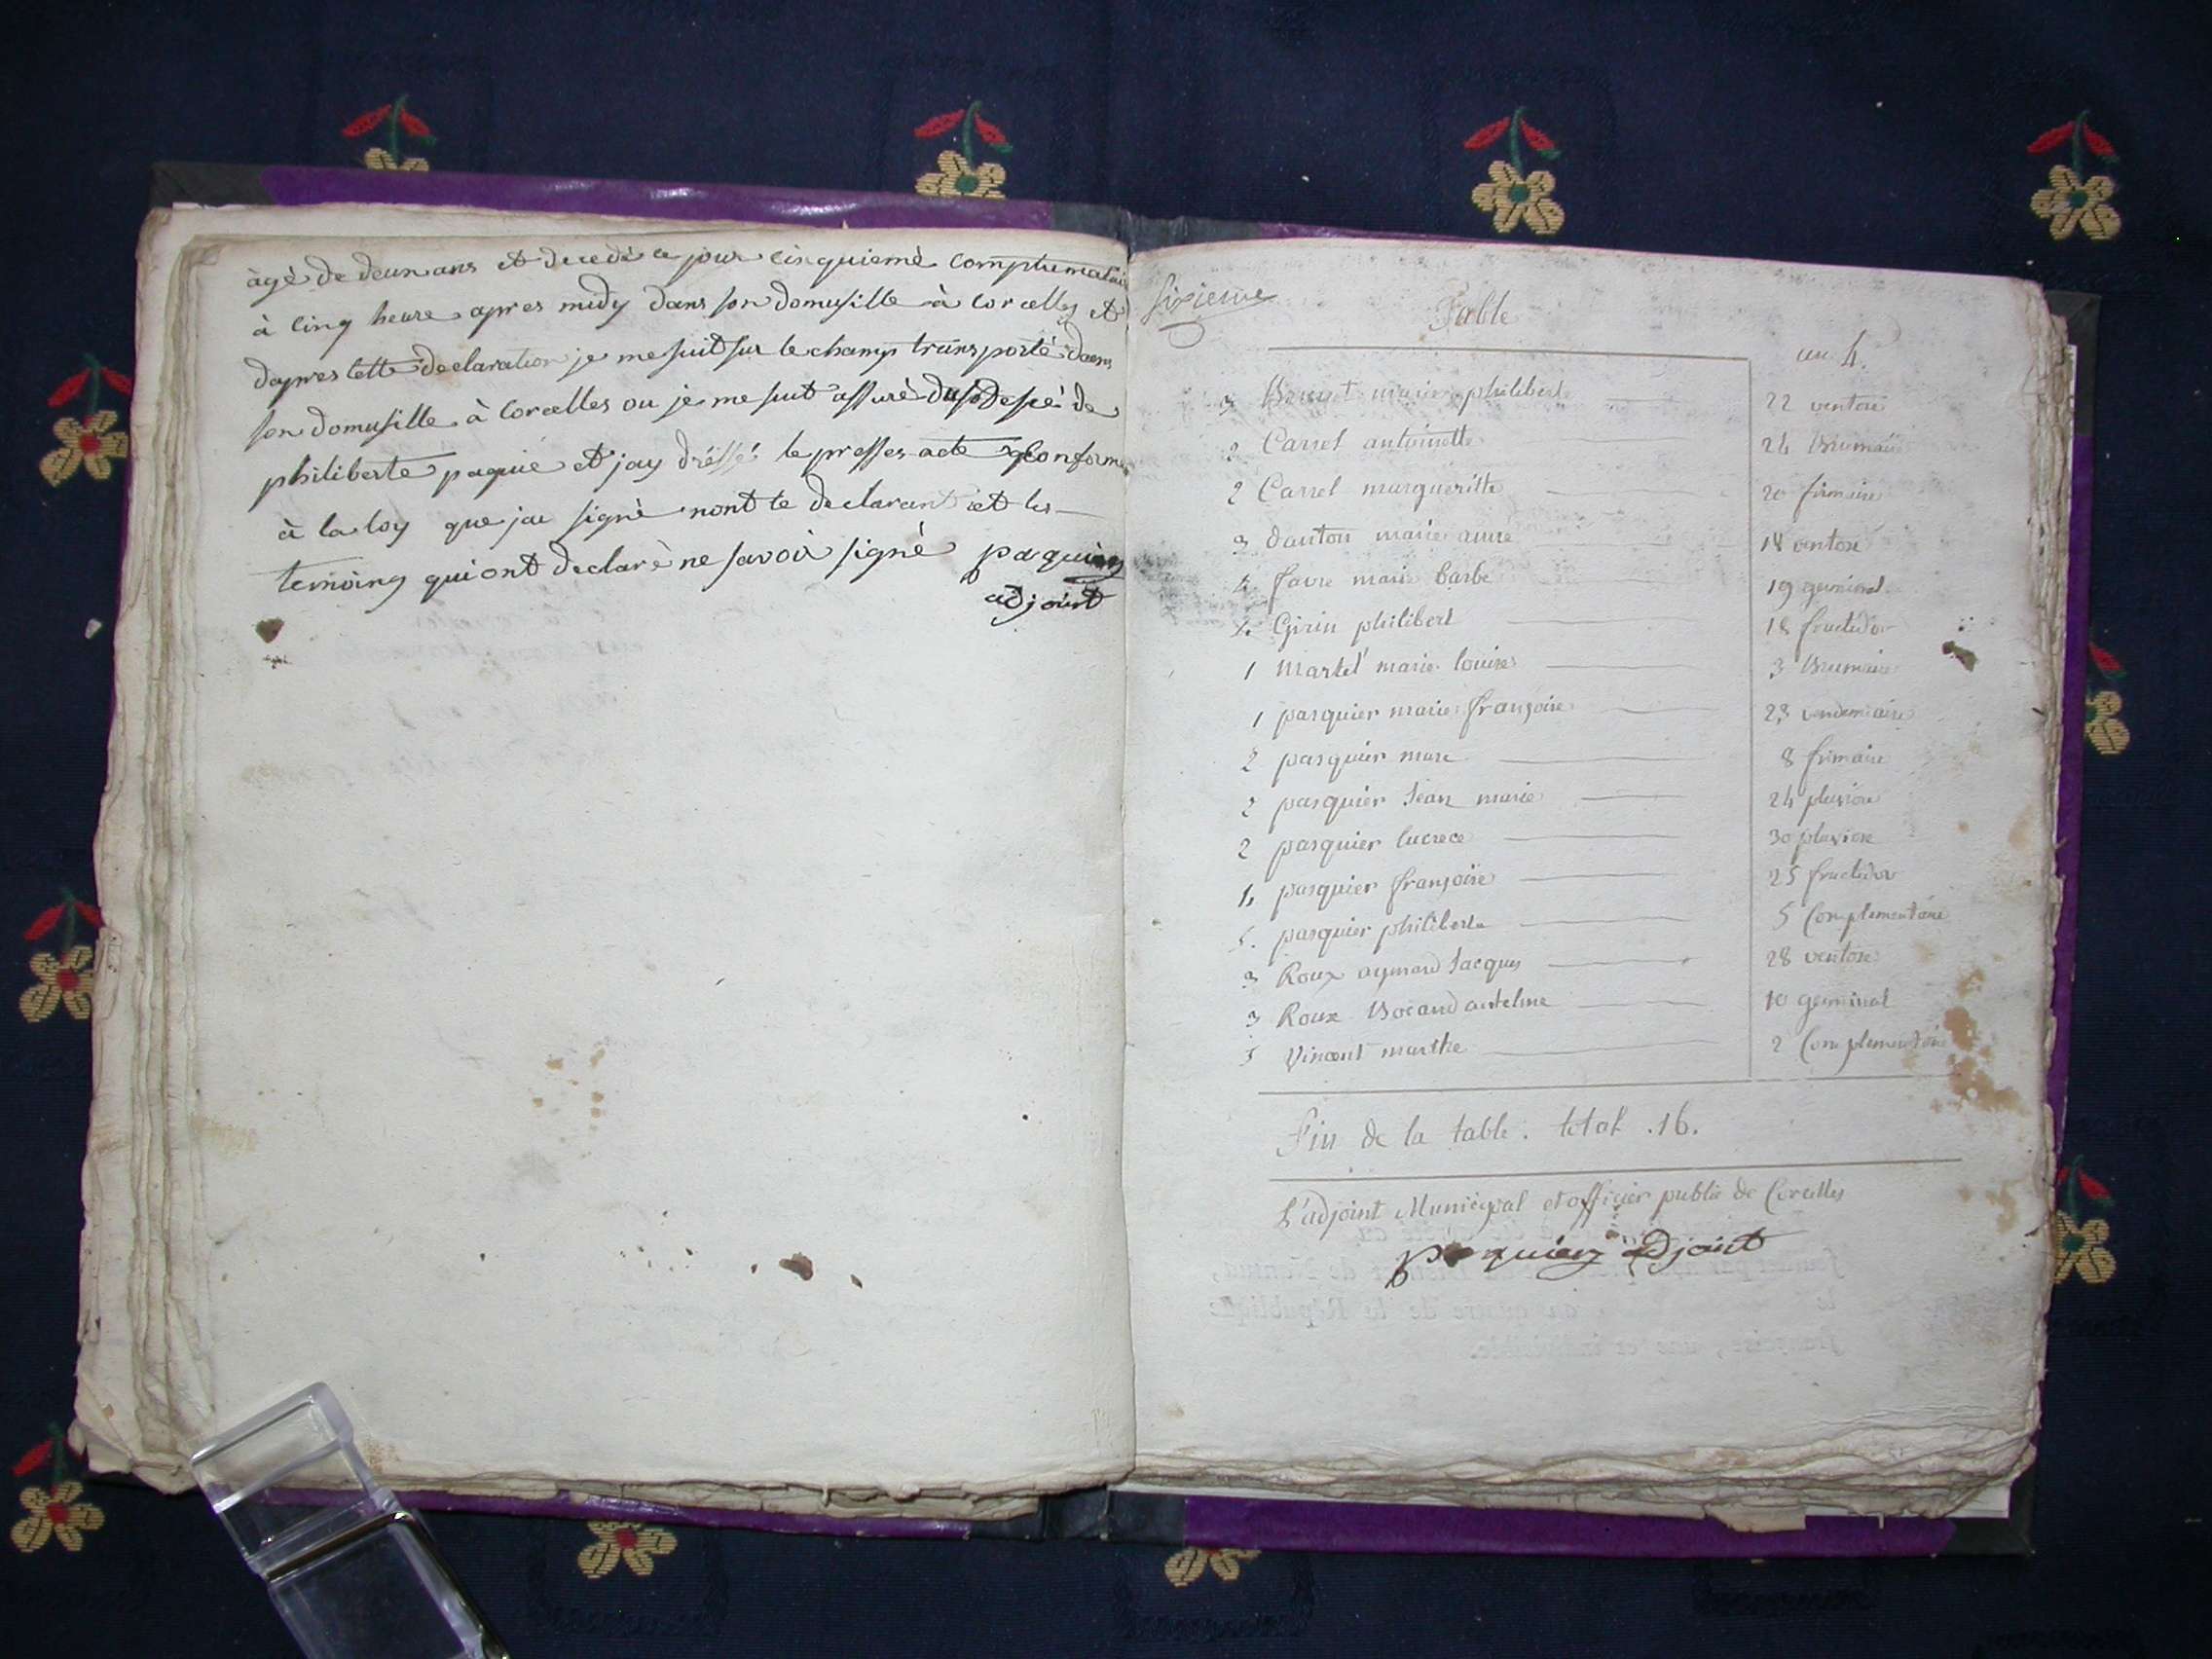 àgé de deux ans et decedé ce jour cinquiemè complementair
à cinq heure apres midy dans son domusille à corcelles et
dapres cette declaration je me suit sur le champ transporté dans
son domusille à Corcelles ou je me suit assuré du desé de
philiberte paquié et jay dréssé le presses acte conforme
à la loy que jai signè nont le declarant et les
temoing qui ont declarè ne savoir signé pasquier
adjoint
sixieme
Table
an 4.
3 marie philibert 22 ventose
2 Carrel antoinette 24 Brumaire
2 Carrel margueritte 20 frimaire
3 danton marie anne 18 ventose
4 favre marie barbe 19 germinal
4 Girin philibert 18 fructidor
1 Martel marie louise 3 Brumaire
1 pasquier marie françoise 23 vendemiaire
2 pasquier marc 8 frimaire
2 pasquier Jean marie 24 pluviose
2 pasquier lucrece 30 pluviose
4 pasquier françoise 25 fructidor
5. pasquier philiberte 5 Complementaire
3 Roux aymard Jacques 28 ventose
3 Roux Bocand antelme 10 germinal
5 Vincent marthe 2 Complementaire
Fin de la table. total .16.
L'adjoint Municipal et officier public de Corcelles
pasquier adjoint